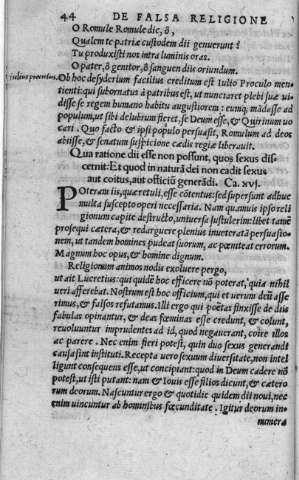 44 DE FALSA RELIGIONE
O Romule Romule dic, ô,
Qualem te patriæ custodem dii genuerunt?
Tu produxisti nos intra luminis oras.
O pater, ô genitor, ô sanguen diis oriundum.
Iulius proculus. Ob hoc desyderium facilius creditum est Iulio Proculo men-
tienti: qui subornatus à patribus est, ut nunciaret plebi suæ vi-
disse se regem humano habitu augustiorem: eumq; mādasse ad
populum, ut sibi delubrum fieret, se Deum esse, & Quirinum vo
cari. Quo facto & ipsi populo persuasit, Romulum ad deos
abiisse, & senatum suspicione cædis regiæ liberauit.
Qua ratione dii esse non possunt, quos sexus dis-
cernit: Et quod in naturā dei non cadit sexus
aut coitus, aut officiū generādi. Ca. xvj.
Poteram iis, quæ retuli, esse cōtentus: sed supersunt adhuc
multa suscepto operi necessaria. Nam quamuis ipso reli
gionum capite destructo, vniuersa sustulerim: libet tamē
prosequi cætera, & redarguere plenius inueteratā persuasio-
nem, ut tandem homines pudeat suorum, ac pœniteat errorum.
Magnum hoc opus, & homine dignum.
Religionum animos nodis exoluere pergo,
ut ait Lucretius: qui quidē hoc efficere nō poterat, quia nihil
veri afferebat. Nostrum est hoc officium, qui et verum deū asse
rimus, & falsos refutamus. Illi ergo qui poëtas finxisse de diis
fabulas opinantur, & deas fœminas esse credunt, & colunt,
reuoluuntur imprudentes ad id, quod negauerant, coire illos
ac parere. Nec enim fieri potest, quin duo sexus generandi
causa sint instituti. Recepta vero sexuum diuersitate, non intel
ligunt consequens esse, ut concipiant: quod in Deum cadere nō
potest, ut isti putant: nam & Iouis esse filios dicunt, & cætero
rum deorum. Nascuntur ergo & quotidie quidem dii noui, nec
enim vincuntur ab hominibus fœcunditate. Igitur deorum in-
numera